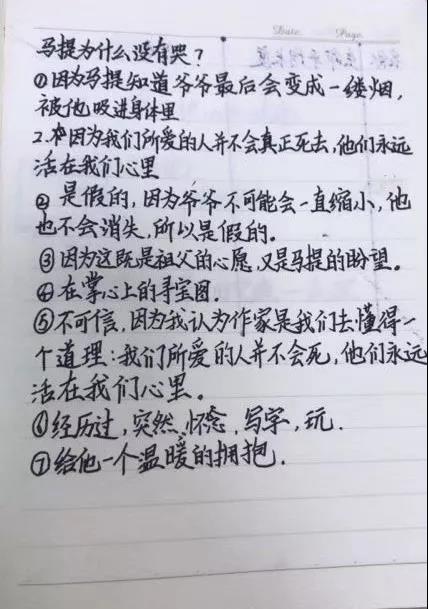 Date. Page.
马提为什么没有哭？
①因为马提知道爷爷最后会变成一缕烟，
被他吸进身体里
2.因为我们所爱的人并不会真正死去，他们永远
活在我们心里
② 是假的，因为爷爷不可能会一直缩小，他
也不会消失，所以是假的。
③因为这既是祖父的心愿，又是马提的盼望。
④在掌心上的寻宝图。
⑤不可信，因为我认为作家是我们去懂得一
个道理：我们所爱的人并不会死，他们永远
活在我们心里。
⑥经历过，突然、怀念，写字，玩.
⑦给他一个温暖的拥抱.